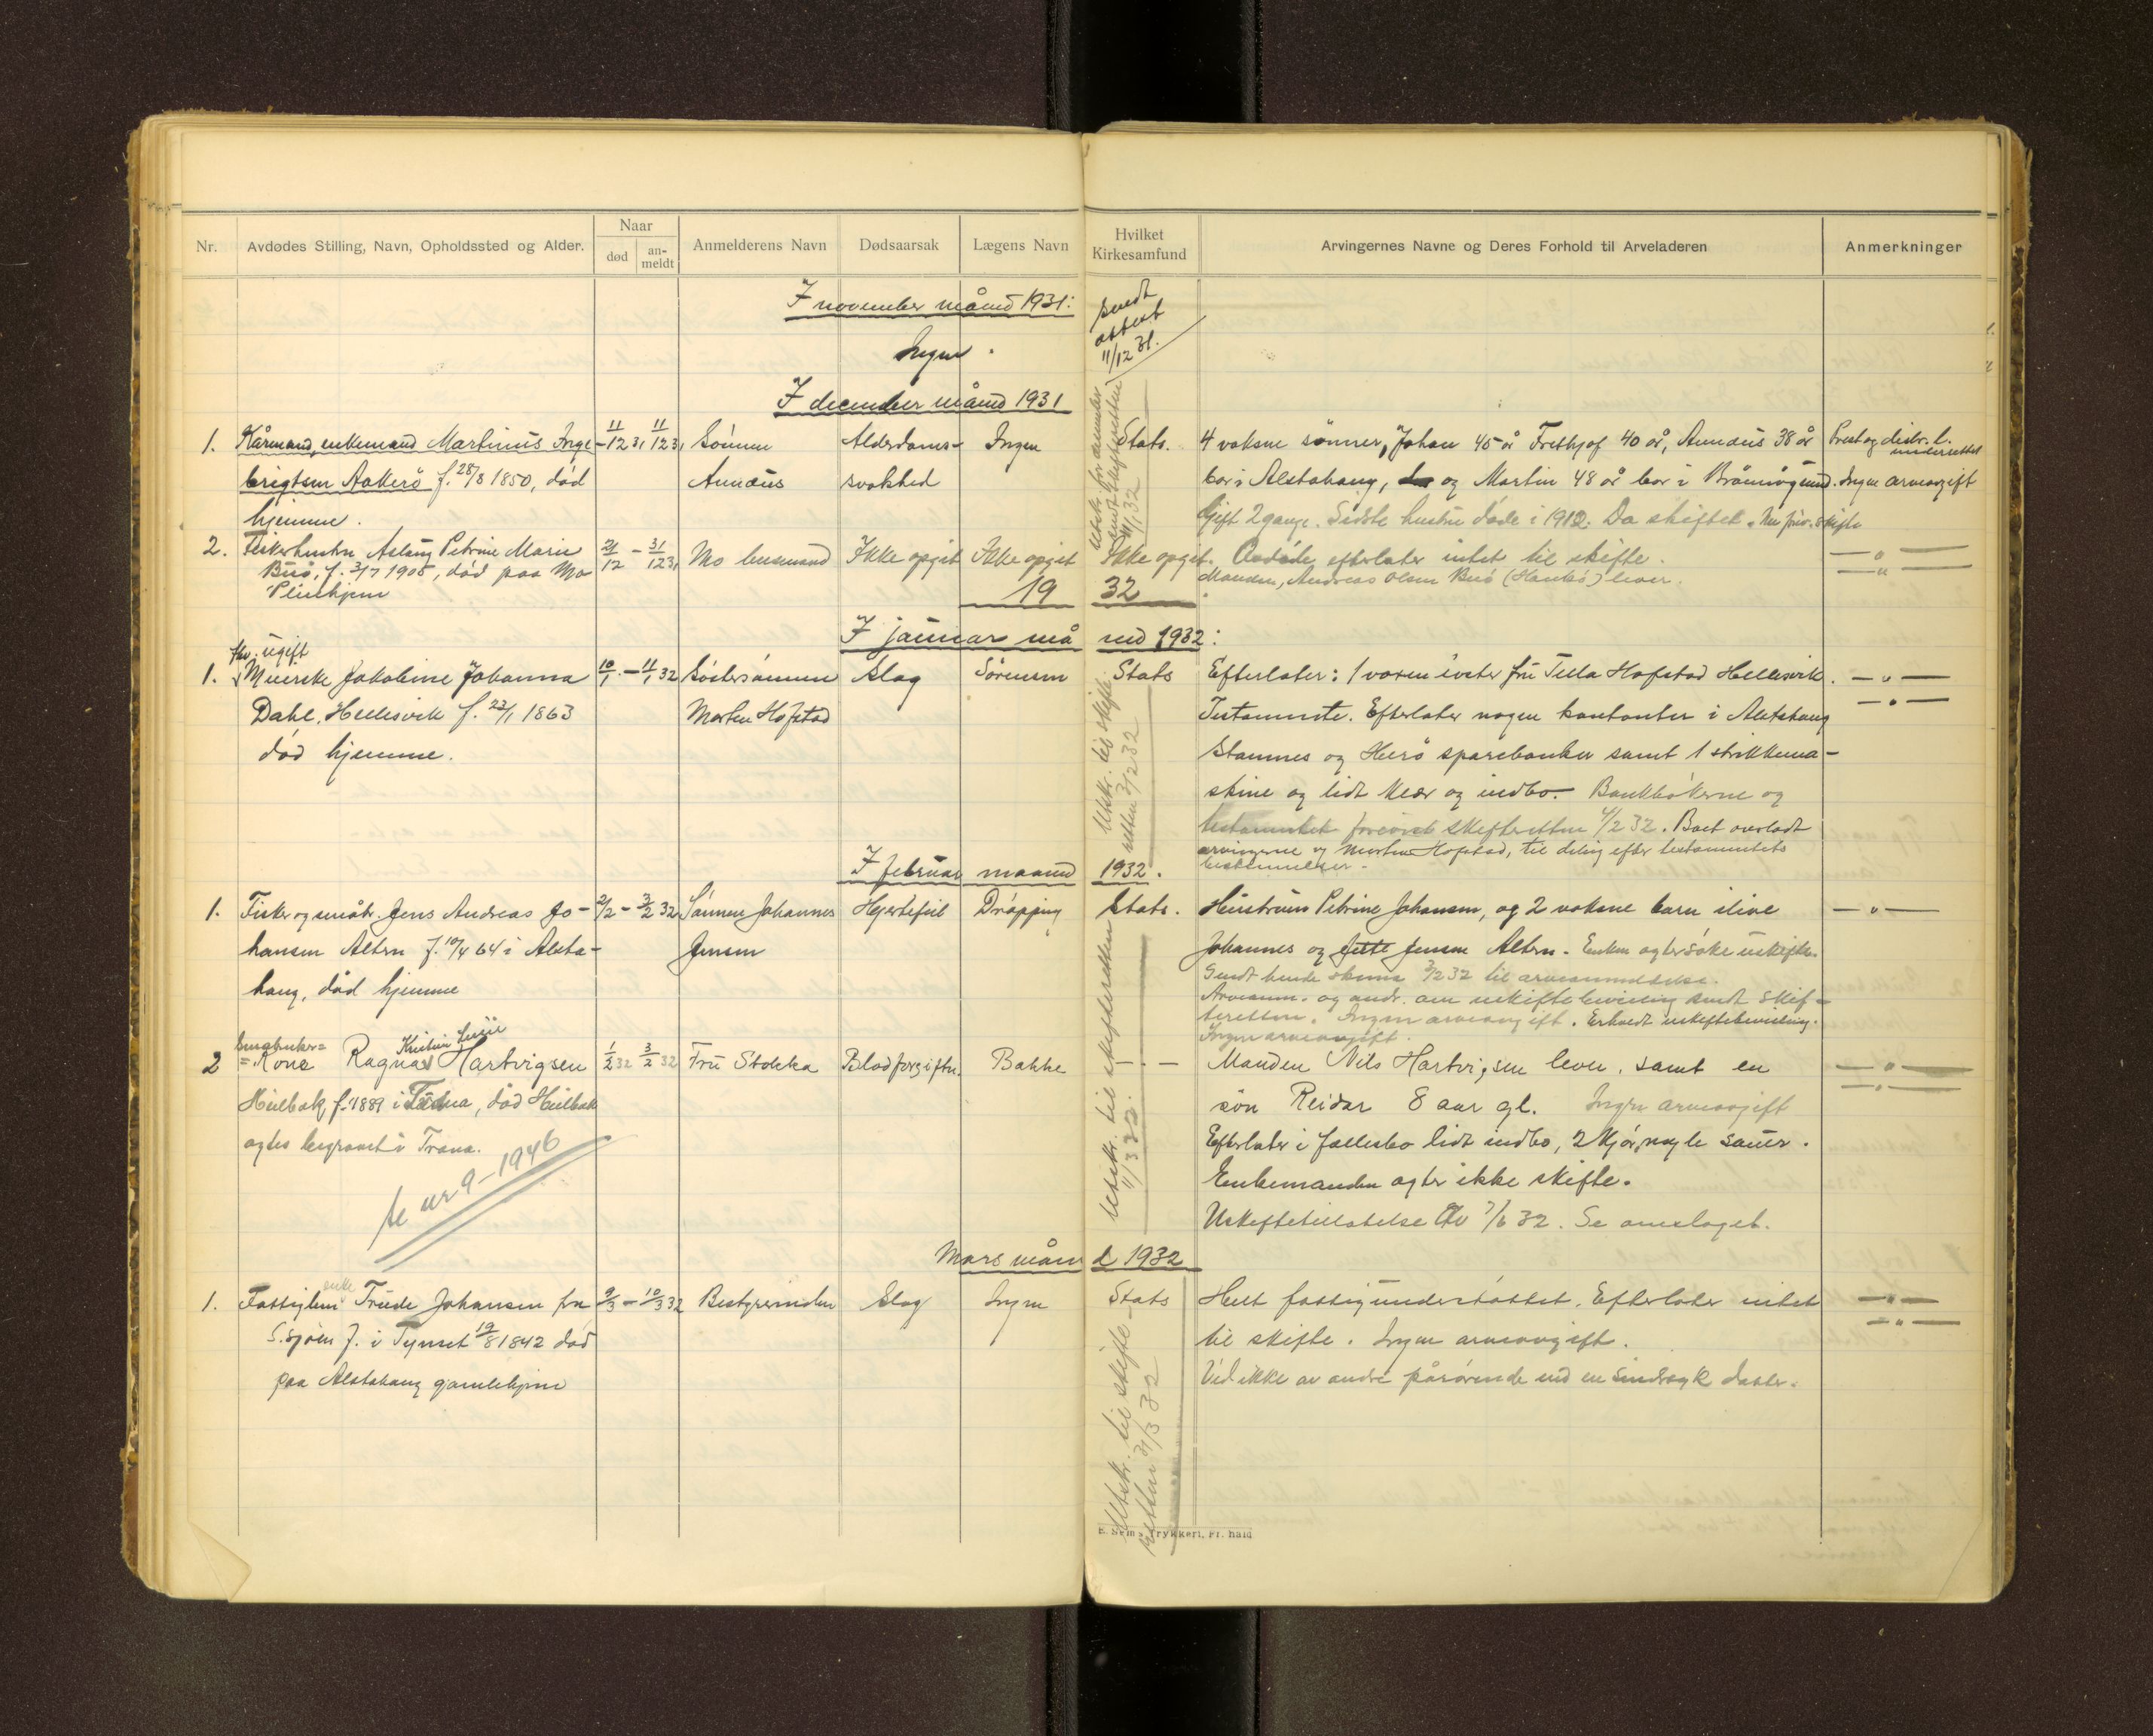 Nr.
Avdødes Stilling, Navn, Opholdssted og Alder.
Naar
død
an-
meldt
Anmelderens Navn
Dødsaarsak
Lægens Navn
Hvilket
Kirkesamfund
Arvingernes Navne og Deres Forhold til Arveladeren
Anmerkninger
I november månd 1931:
Ingen.
sendt
attest
11/12 31.
I december månd 1931
1. Kårmand, enkemand Martinus Inge- 11/12 31 11/12 31 Sönnen Alderdoms- Ingen Stats. 4 voksne sønner, Johan 45 år Frethjof 40 år, Annæus 38 år Prest og distr.l. underrettet
brigtsen Aakerö f. 28/8 1850, död Annæus svakhed bor i Alstahaug, og Martin 48 år bor i Brönnöysund. Ingen arveavgift
hjemme. Gift 2 gange. Sidste hustru døde i 1912. Da skiftet. Nu priv. skifte
2. Fiskerhustru Aslaug Petrine Marie 21/12 - 31/12 31 Mo lensmand Ikke opgit Ikke opgit Ikke opgit. Avdøde efterlater intet til skifte. — " —
Buö, f. 3/7 1905, död paa Mo Manden, Andreas Olsen Buö lever. — " —
Pleiehjem
1932
I januar månd 1932:
ugift
1. Meierske Jakobine Johanna 10/1 - 11/1 32 Söstersönnen Slag Sörensen Stats Efterlater: 1 voxen søster fru Tella Hofstad Hellesvik. — " —
Dahl, Hellesvik f. 23/1 1863 Morten Hofstad Testamente. Efterlater nogen kontanter i Alstahaug — " —
död hjemme. Stamnes og Herö sparebanker samt 1 strikkema-
skine og lidt klær og indbo. Bankbökerne og
testamentet forevist skifteretten 4/2 32. Boet overlodt
arvingerne og Morten Hofstad, til deling efter testamentets
bestemmelser.
Utskr. til skifte-
retten 3/2 32
I februar maaned 1932.
1. Fisker og småbr. Jens Andreas Jo- 2/2 - 3/2 32 Sönnen Johannes Hjertefeil Dröpping Stats. Hustruen Petrine Johansen, og 2 voksne barn ilive — " —
hansen Altern f. 10/4 64 i Alsta- Jensen Johannes og Jette Jensen Altern. Enken agter söke uskifte.
haug, död hjemme Sendt hende skema 3/2 32 til arveanmeldelse.
Arveanm. og andr. om uskiftebevilling sendt skif-
teretten. Ingen arveavgift. Erhvedt uskiftebevilling.
Ingen arveavgift.
Smabruker=
Kristine
2 = Kone Ragna Hartvigsen 1/2 32 3/2 32 Fru Stokka Blodforgiftn. Bakke — " — Manden Nils Hartvigsen lever, samt en — " —
Heilbak f. 1889 i, död Heilbak sön Reidar 8 aar gl. Ingen arveavgift — " —
agtes begravet i Træna. Efterlater i fællesbo lidt indbo, 2 kjör, nogle sauer.
Enkemanden agter ikke skifte.
Uskiftetillatelse av 7/6 32. Se omslaget.
Utskr. til skifteretten
1/3 32.
se nr 9 - 1946
Mars månd 1932
enke
1. Fattiglem Trude Johansen fra 9/3 - 10/3 32 Bestyrerinden Slag Ingen Stats Helt fattigunderstøttet. Efterlater intet — " —
S.sjöen f. i Tynset 19/8 1842 död til skifte. Ingen arveavgift. — " —
paa Alstahaug gamlehjem Ved ikke av andre pårørende end en sindssyk datter.
Utskr. til skifte-
retten 31/3 32
E. Sem's Trykkeri, Fr. hald